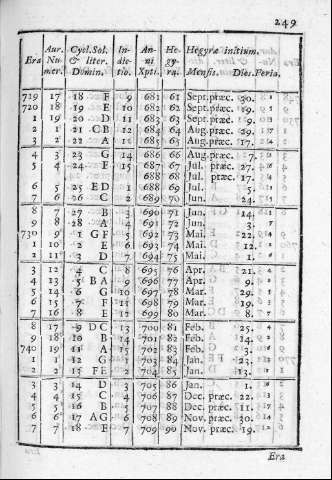 249
Era Aur. Numer. Cycl. Sol. & liter. Domin. Indictio. Anni Xpti. Hegyra. Hegyræ initium. Mensis. Dies. Feria.
719 17 18 F 9 681 61 Sept. præc. 30.
720 18 19 E 10 682 62 Sept. præc. 19.
1 19 20 D 11 683 63 Sept. præc. 9.
2 1 21 CB 12 684 64 Aug. præc. 29.
3 2 22 A 685 65 Aug. præc. 17.
4 3 23 G 14 686 66 Aug. præc. 7.
5 4 24 F 15 687 67 Jul. præc. 27.
688 68 Jul. præc. 17.
6 5 25 ED 1 688 69 Jul. 5.
7 6 26 C 2 689 70 Jun. 24.
8 7 27 B 3 690 71 Jun. 14.
9 8 28 A 4 691 72 Jun. 3.
730 9 1 GF 5 692 73 Mai. 22.
1 10 2 E 6 693 74 Mai. 12.
2 11 3 D 7 694 75 Mai. 1.
3 12 4 C 8 695 76 Apr. 21.
4 13 5 BA 9 696 77 Apr. 9.
5 14 6 G 10 697 78 Mar. 29.
6 15 7 F 11 698 79 Mar. 19.
7 16 8 E 12 699 80 Mar. 8.
8 17 9 DC 13 700 81 Feb. 25.
9 18 10 B 14 701 82 Feb. 14.
740 19 11 A 15 702 83 Feb. 3.
1 1 12 G 1 703 84 Jan. 23.
2 2 13 FE 2 704 85 Jan. 13.
3 3 14 D 3 705 86 Jan. 1.
4 4 15 C 4 706 87 Dec. præc. 22.
5 5 16 B 5 707 88 Dec. præc. 11.
6 6 17 AG 6 708 89 Nov. præc. 30.
7 7 18 F 7 709 90 Nov. præc. 19.
Era